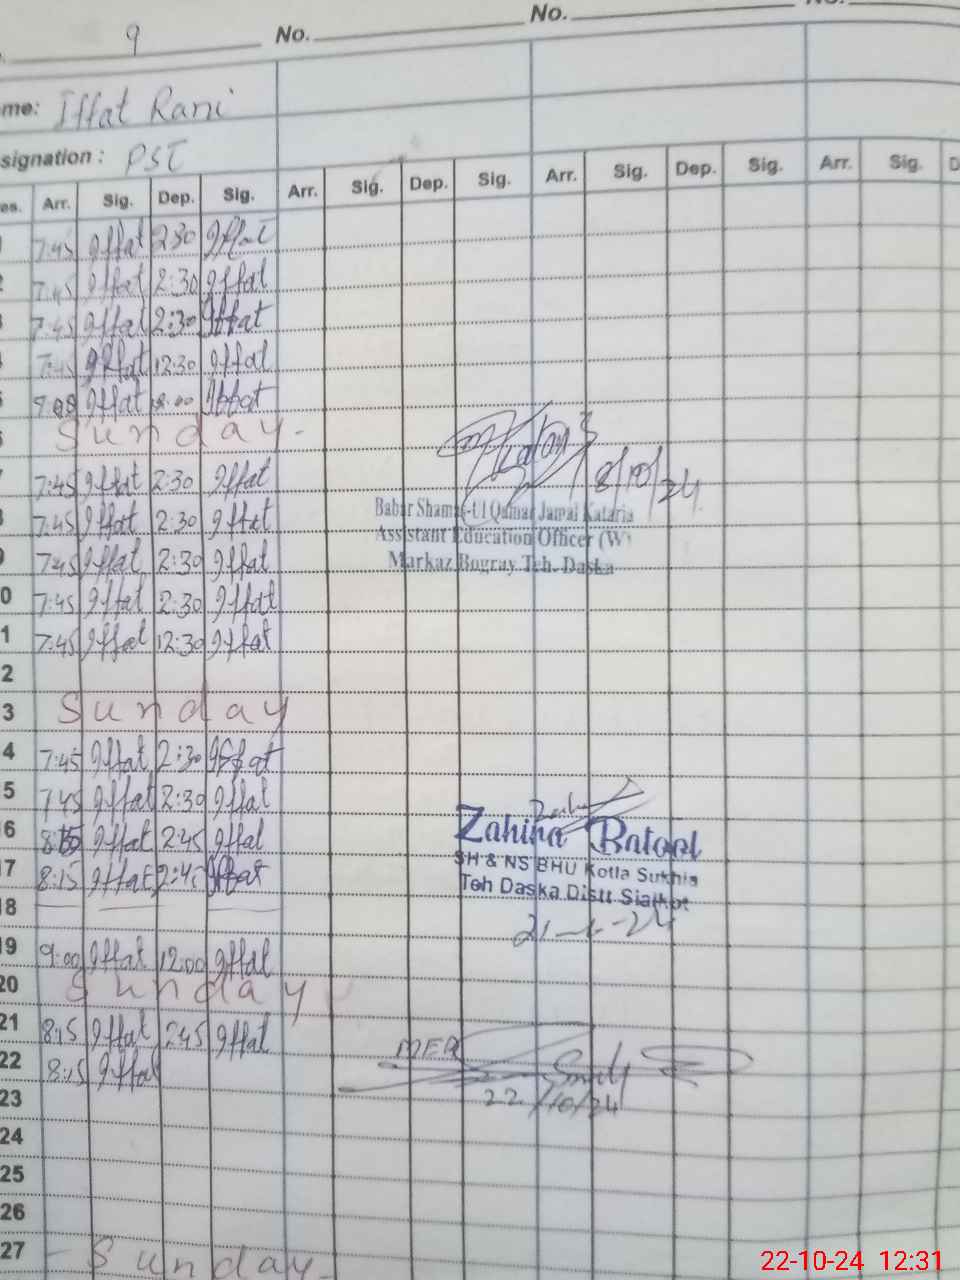 9 No. No. No.
me: Iffat Rani
signation : PST
es. Arr. Sig. Dep. Sig. Arr. Sig. Dep. Sig. Arr. Sig. Dep. Sig. Arr. Sig. D
7:45 Iffat 2:30 Iffat
2 7:45 Iffat 2:30 Iffat
7:45 Iffat 2:30 Iffat
7:45 Iffat 12:30 Iffat
Iffat Iffat
Sunday.
7:45 Iffat 2:30 Iffat
8/10/24
7:45 Iffat 2:30 Iffat
Babar Shamas-Ul Qamar Jamal Kataria
Assistant Education Officer (W)
Markaz Bogray Teh. Daska
7:45 Iffat 2:30 Iffat
0 7:45 Iffat 2:30 Iffat
1 7:45 Iffat 12:30 Iffat
2
3 Sunday
4 7:45 Iffat 2:30 Iffat
5 7:45 Iffat 2:30 Iffat
6 8:15 Iffat 2:45 Iffat
Zahira Batool
17 8:15 Iffat 2:45 Iffat
SH & NS BHU Kotla Sukhia
Teh Daska Distt Sialkot
18
19 9:00 Iffat 12:00 Iffat
20 Sunday
21 8:15 Iffat 2:45 Iffat
22 8:15 Iffat
MEA
22/10/24
23
24
25
26
27 - Sunday -
22-10-24 12:31